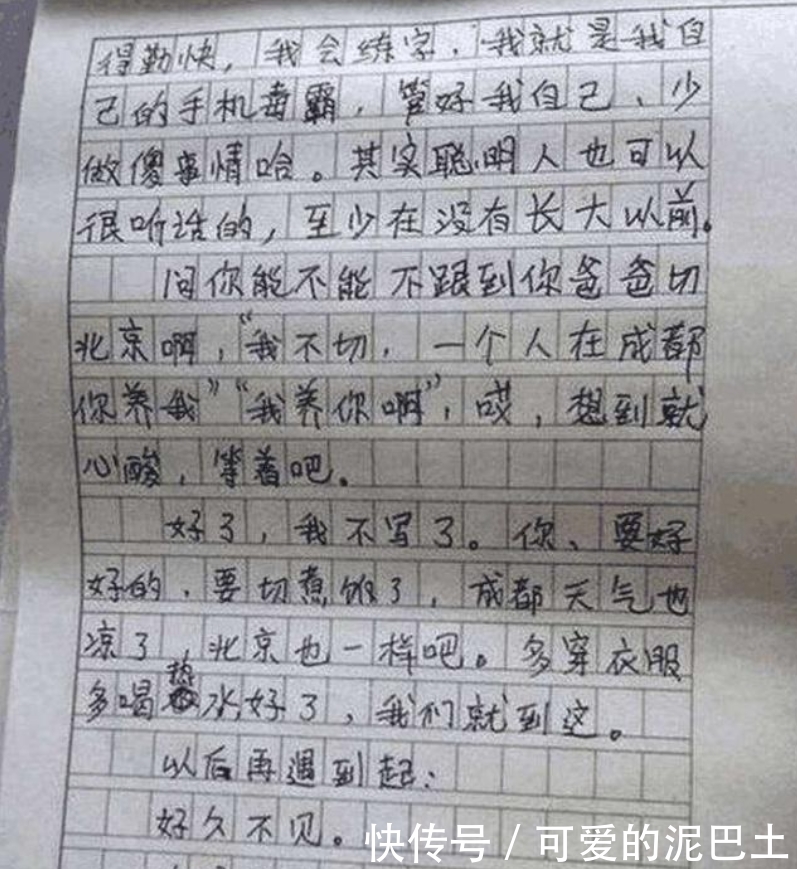 得勤快，我会练字，我就是我自
己的手机毒霸，管好我自己、少
做傻事情哈。其实聪明人也可以
很听话的，至少在没有长大以前。
问你能不能不跟到你爸爸切
北京啊，“我不切，一个人在成都
你养我”“我养你啊”，哎，想到就
心酸，等着吧。
好了，我不写了。你、要好
好的，要切煮饭了，成都天气也
凉了，北京也一样吧。多穿衣服
多喝热水，好了，我们就到这。
以后再遇到起：
好久不见。
快传号 / 可爱的泥巴土